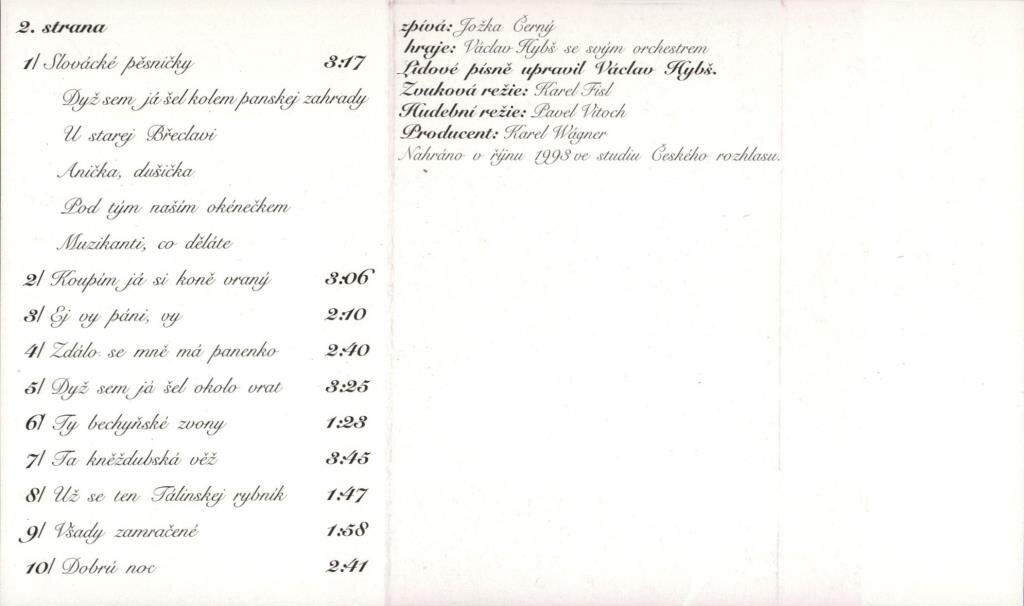 2. strana
1/ Slovácké pěsničky 3:17
Dyž sem já šel kolem panskej zahrady
U starej Břeclavi
Anička, dušička
Pod tým naším okénečkem
Muzikanti, co děláte
2/ Koupím já si koně vraný 3:06
3/ Ej vy páni, vy 2:10
4/ Zdálo se mně má panenko 2:40
5/ Dyž sem já šel okolo vrat 3:25
6/ Ty bechyňské zvony 1:23
7/ Ta kněždubská věž 3:45
8/ Už se ten Tálinskej rybník 1:47
9/ Všady zamračené 1:58
10/ Dobrú noc 2:41
zpívá: Jožka Černý
hraje: Václav Hybš se svým orchestrem
Lidové písně upravil Václav Hybš.
Zvuková režie: Karel Fisl
Hudební režie: Pavel Vitoch
Producent: Karel Wágner
Nahráno v říjnu 1993 ve studiu Českého rozhlasu.